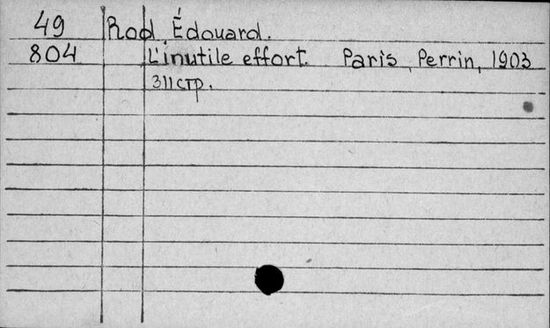 49 Rod, Édouard.
804 L'inutile effort. Paris, Perrin, 1903
311 стр.